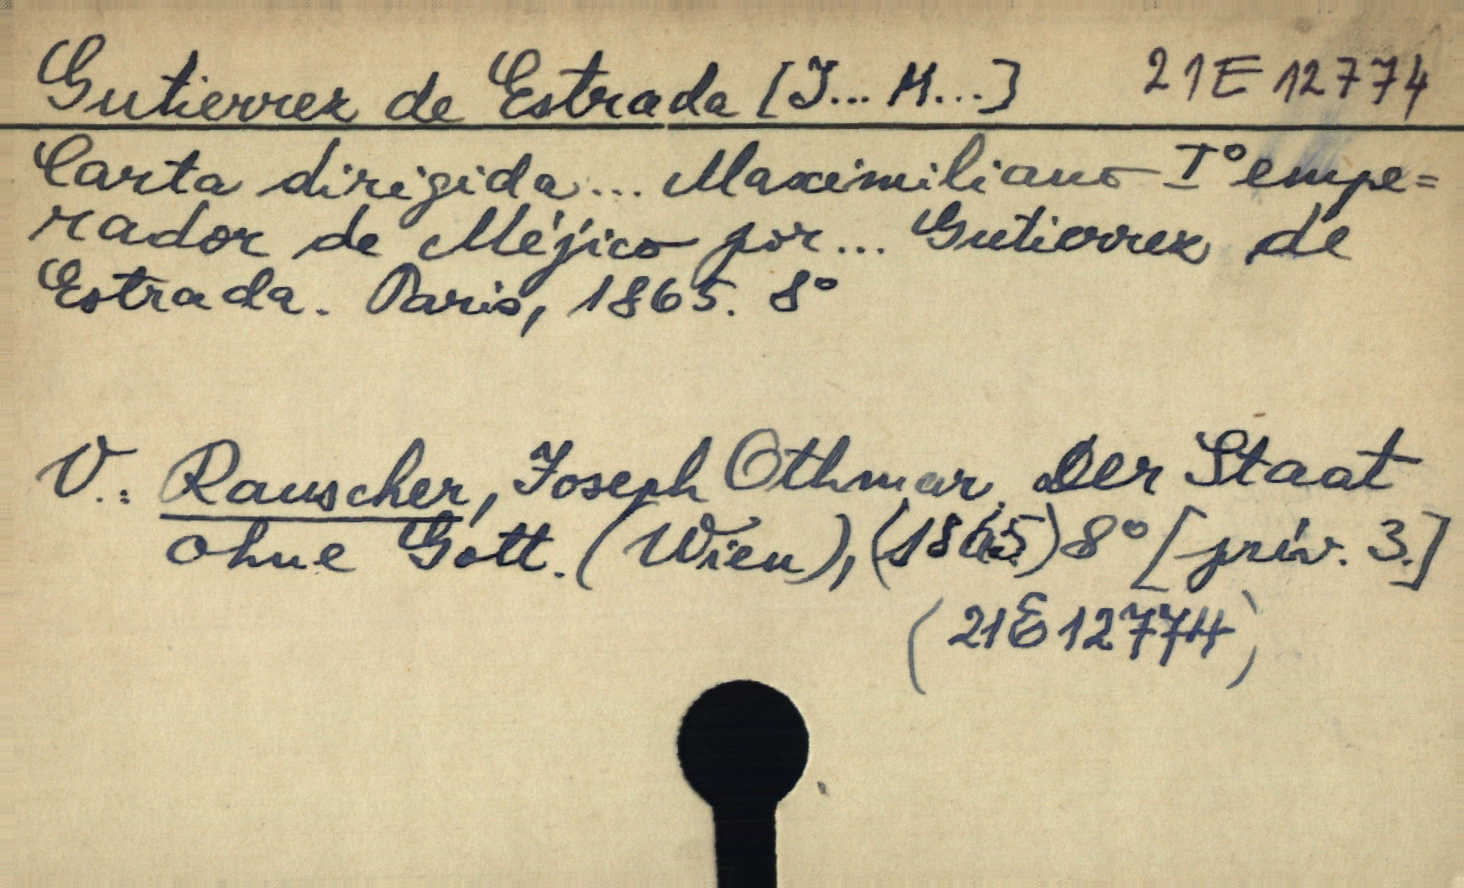 Gutierrez de Estrada [J... M...] 21E12774
Carta dirigida... Maximiliano I° empe=
rador de Méjico por... Gutierrez de
Estrada. Paris, 1865. 8°
V.: Rauscher, Joseph Othmar. Der Staat
ohne Gott. (Wien), (1865) 8° [priv. 3.]
(21E12774)